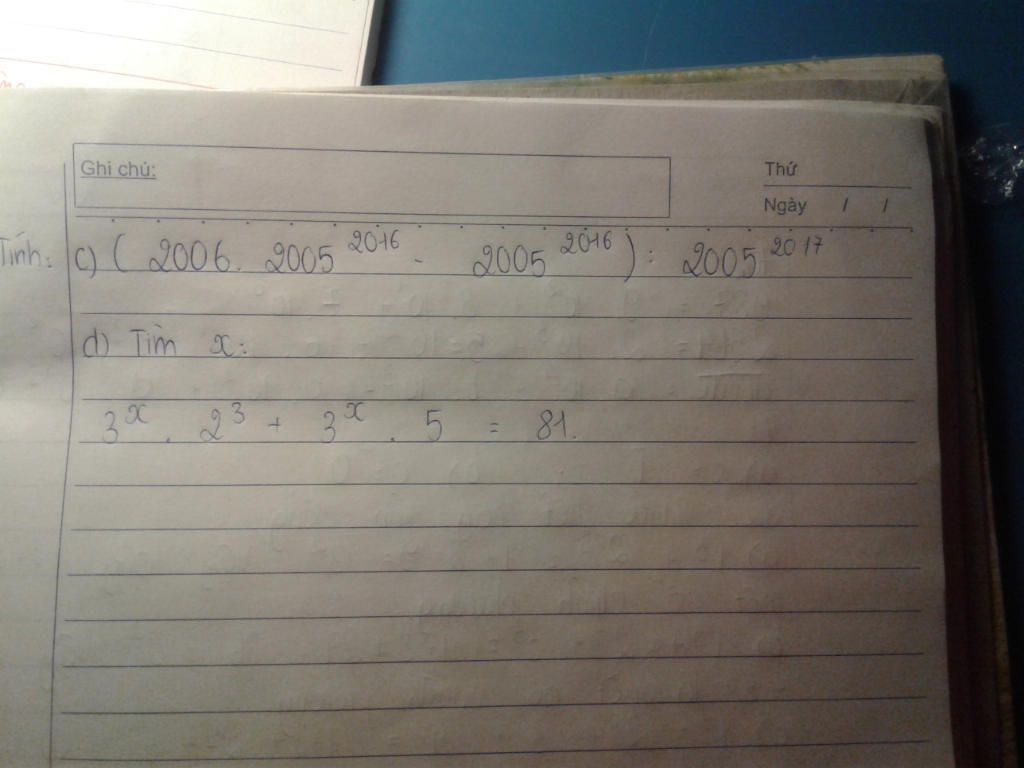 Ghi chú:
Thứ
Ngày / /
Tính: c) ( 2006. 2005^2016 - 2005^2016 ) : 2005^2017
d) Tìm x:
3^x . 2^3 + 3^x . 5 = 81.